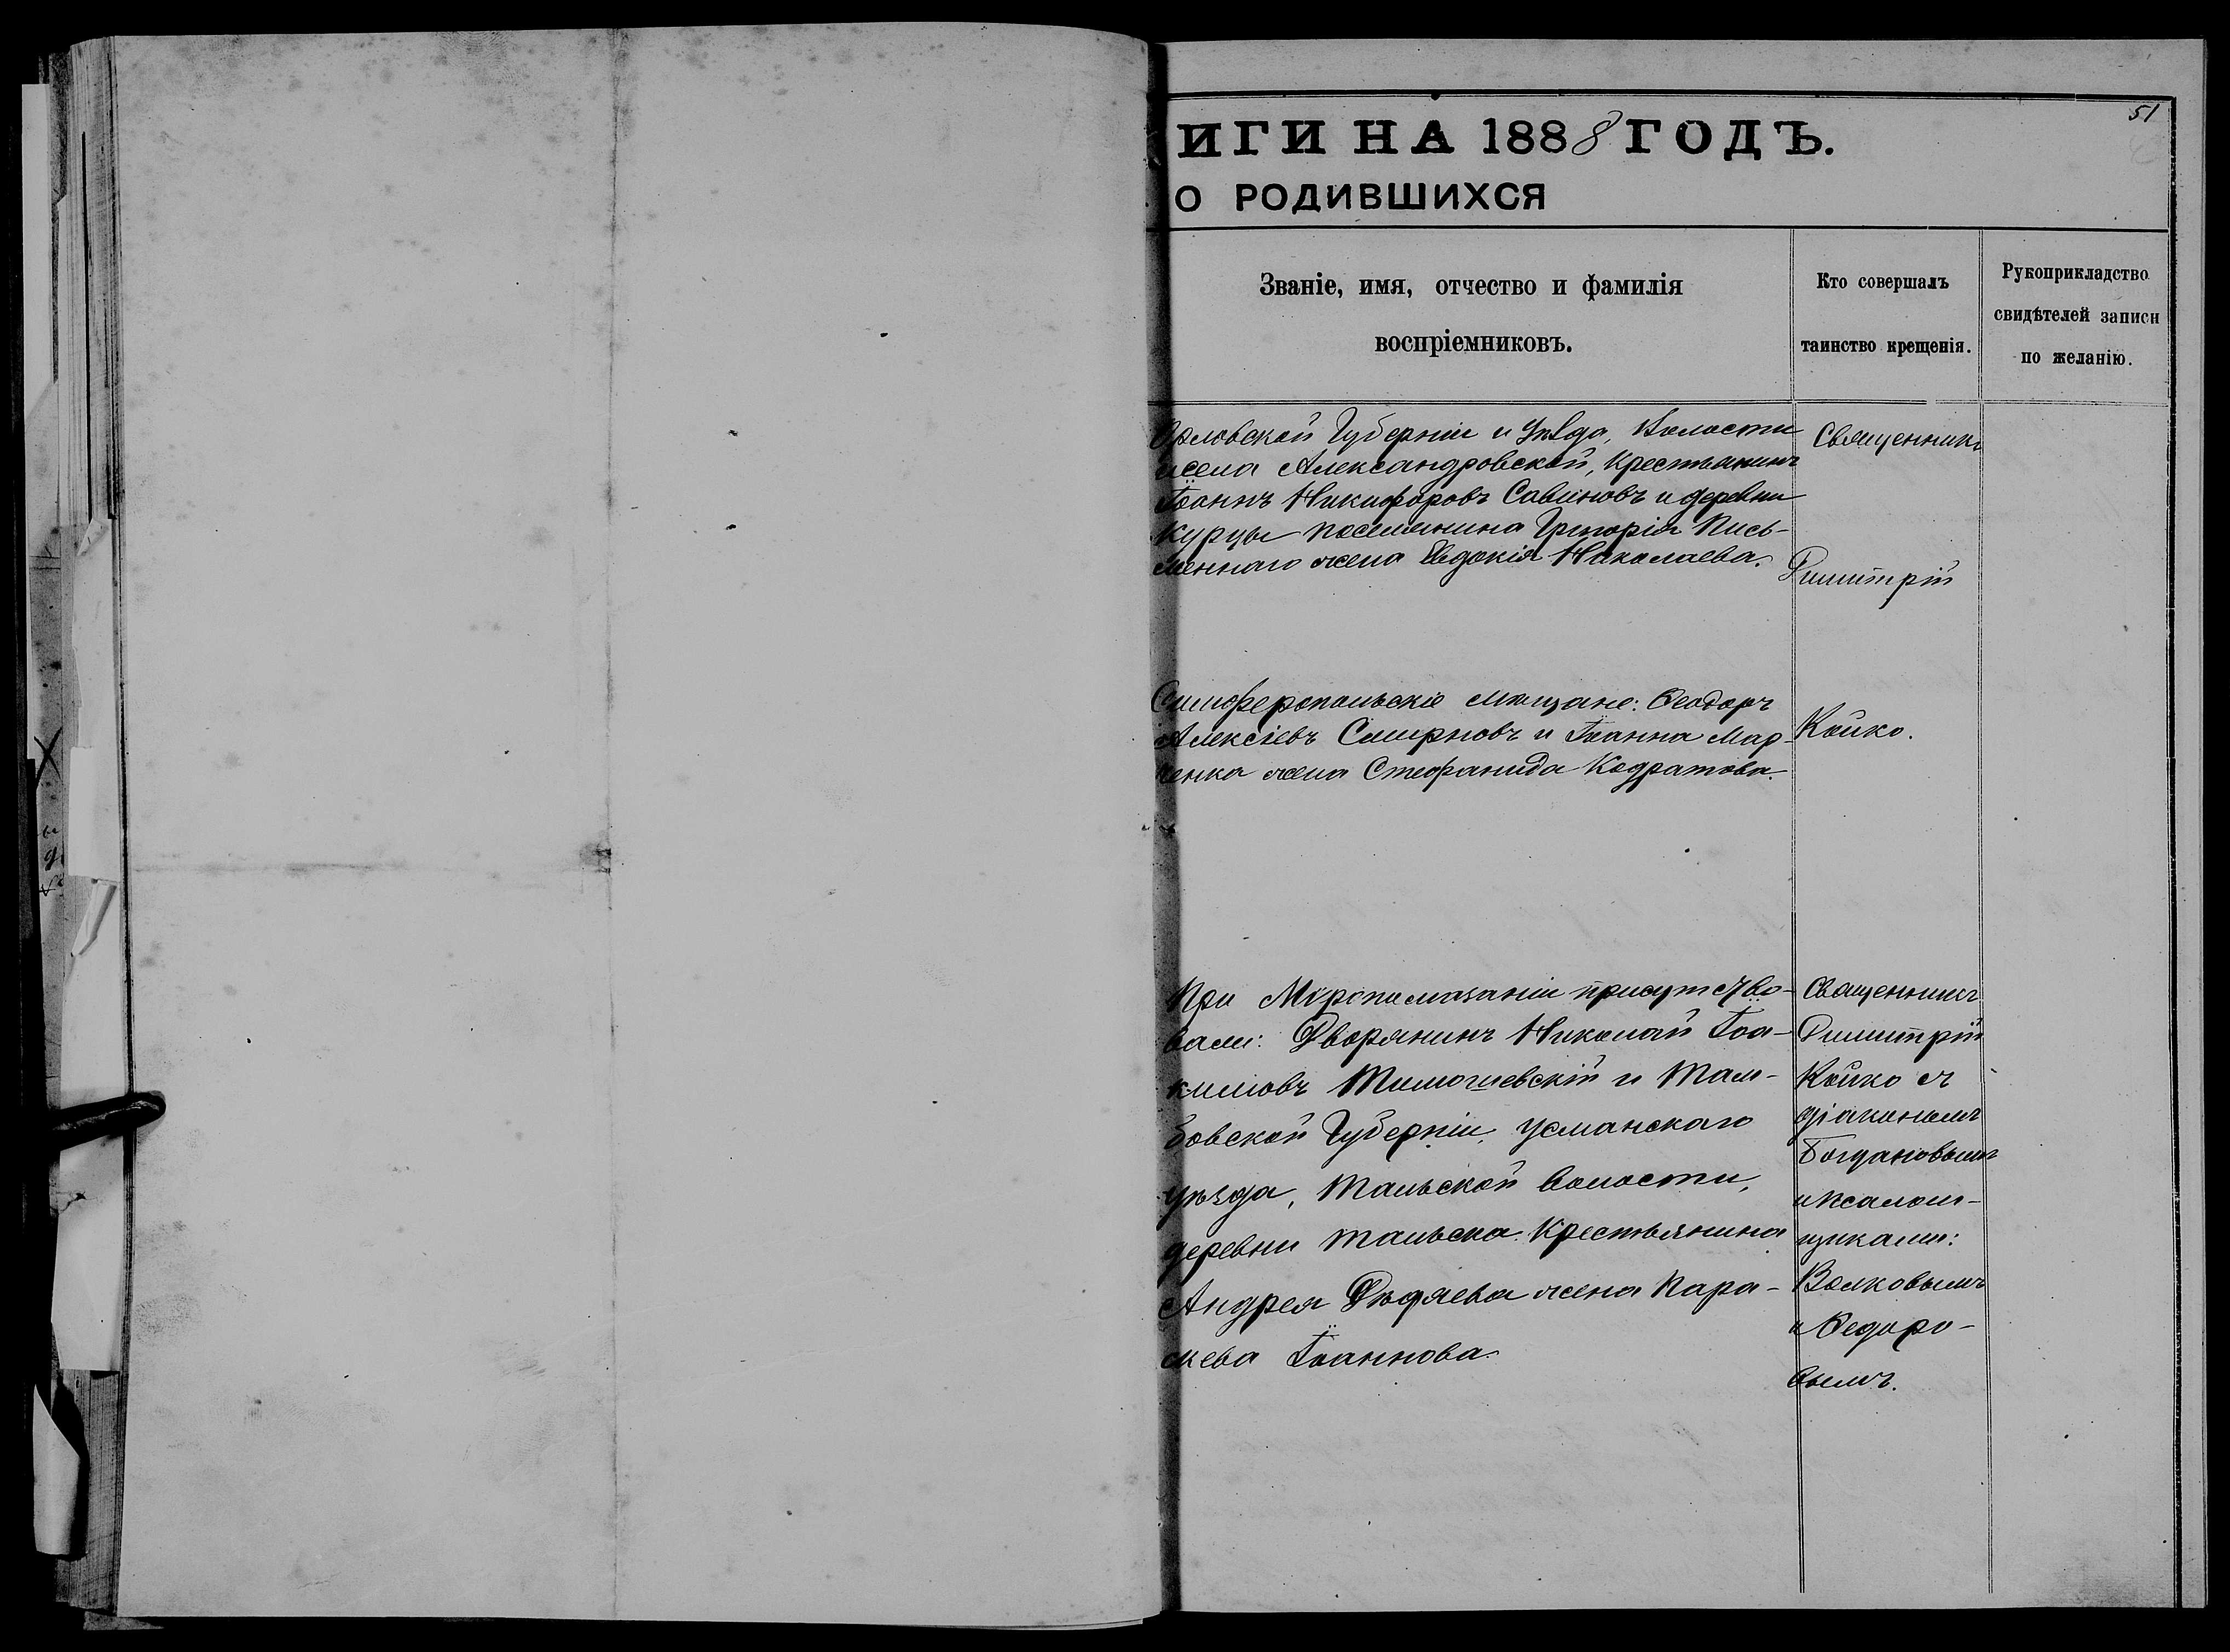 51
ИГИ НА 1888 ГОДЪ.
О РОДИВШИХСЯ
Званіе, имя, отчество и фамилія
воспріемниковъ.
Кто совершалъ
таинство крещенія.
Рукоприкладство
свидѣтелей записи
по желанію.
Орловской Губерніи и Уѣзда, Волости
и села Александровской, Крестьянинъ
Іоаннъ Никифоровъ Савиновъ и деревни
Курцы поселянина Григорія Пись-
меннаго жена Евдокія Николаева.
Священникъ
Димитрій
Койко.
Симферопольскіе мѣщане: Ѳеодоръ
Алексіевъ Смирновъ и Іоанна Мар-
ченка жена Стефанида Кодратова.
При Мѵропомазаніи присутство-
вали: Дворянинъ Николай Іоа-
кимовъ Тимошевскій и Там-
бовской Губерніи, Усманскаго
уѣзда, Тальской волости,
деревни Тальска Крестьянина
Андрея Дѣдяева жена Пара-
скева Іоаннова.
Священникъ
Димитрій
Койко съ
діакономъ
Богдановымъ
и псалом-
щиками:
Волковымъ
и Ѳедоро-
вымъ.